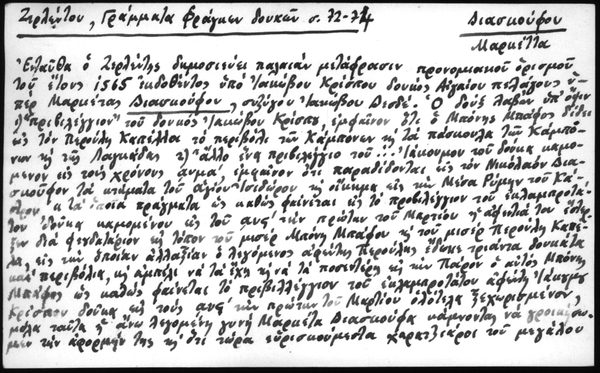 Ζερλέντου, Γράμματα Φράγκων δουκῶν σ. 72-74
Διασκούφου
Μαρκέττα
Ἐνταῦθα ὁ Ζερλέντης δημοσιεύει παλαιὰν μετάφρασιν προνομιακοῦ ὁρισμοῦ
τοῦ ἔτους 1565 ἐκδοθέντος ὑπὸ Ἰακώβου Κρίσπου δουκὸς Αἰγαίου πελάγους ὑ-
πὲρ Μαρκέτας Διασκούφου, συζύγου Ἰακώβου Δεσδέ. Ὁ δοὺξ λαβὼν ὑπ' ὄψιν
"πριβελέγγιον" τοῦ δουκὸς Ἰακώβου Κρίσπου, ἐμφαῖνον ὅτι ὁ Μπόνης Μπάφος δίδει
εἰς τὸν Περούλη Καπέλλο τὸ περιβόλι τῶν Κάμπονων κὴ τὰ πάσκουλα τῶν Καμπό-
νων κὴ τῆς Λαγκάδας κὴ ἄλλο ἕνα πριβελέγγιο τοῦ ... Ἰάκουμου τοῦ δούκα καμο-
μένον εἰς τοὺς χρόνους ἐμφαῖνον ὅτι παραδίδονται εἰς τὸν Νικόλαον Δια-
σκοῦφον τὰ κτήματα τοῦ ἁγίου Ἰσιδώρου κὴ οἴκημα εἰς τὴν Μέσα Ρύμην τοῦ Κά-
στρου κ τὰ ὁποῖα πράγματα ὡς καθὼς φαίνεται εἰς τὸ προβιλέγγιον τοῦ ἐκλαμπροτά-
του δούκα καμομένου εἰς τοῦ εἰς τὴν πρώτην τοῦ Μαρτίου ἡ ἀφεντιά του
διὰ φευδατάριον εἰς τόπον τοῦ μισὲρ Μπόνη Μπάφου κὴ τοῦ μισὲρ Περούλη Καπέ-
λα, εἰς τὴν ὁποίαν ἀλλαξίαν ὁ λεγόμενος ἀφέντης Περούλης ἔδωκε τριάντα δουκάτα
περιβόλια, κὴ ἀμπέλι νὰ τὰ ἔχῃ κὴ νὰ τὰ ποσεντέρῃ εἰς τὴν Πάρον ὁ αὐτὸς Μπόνης
Μπάφος ὡς καθὼς φαίνεται τὸ πριβελέγγιον τοῦ ἐκλαμπροτάτου ἀφέντη Ἰακύμου
Κρίσπου δούκα εἰς τοὺς εἰς τὴν πρώτην τοῦ Μαρτίου ὁλότελα ξεχωρισμένον,
ταῦτα ἡ ἄνω λεγομένη γυνὴ Μαρκέτα Διασκούφα κάμνοντας νὰ
τὴν ἀφορμήν της κὴ ὅτι τώρα εὑρισκούμεστα χαρατζιάροι τοῦ μεγάλου